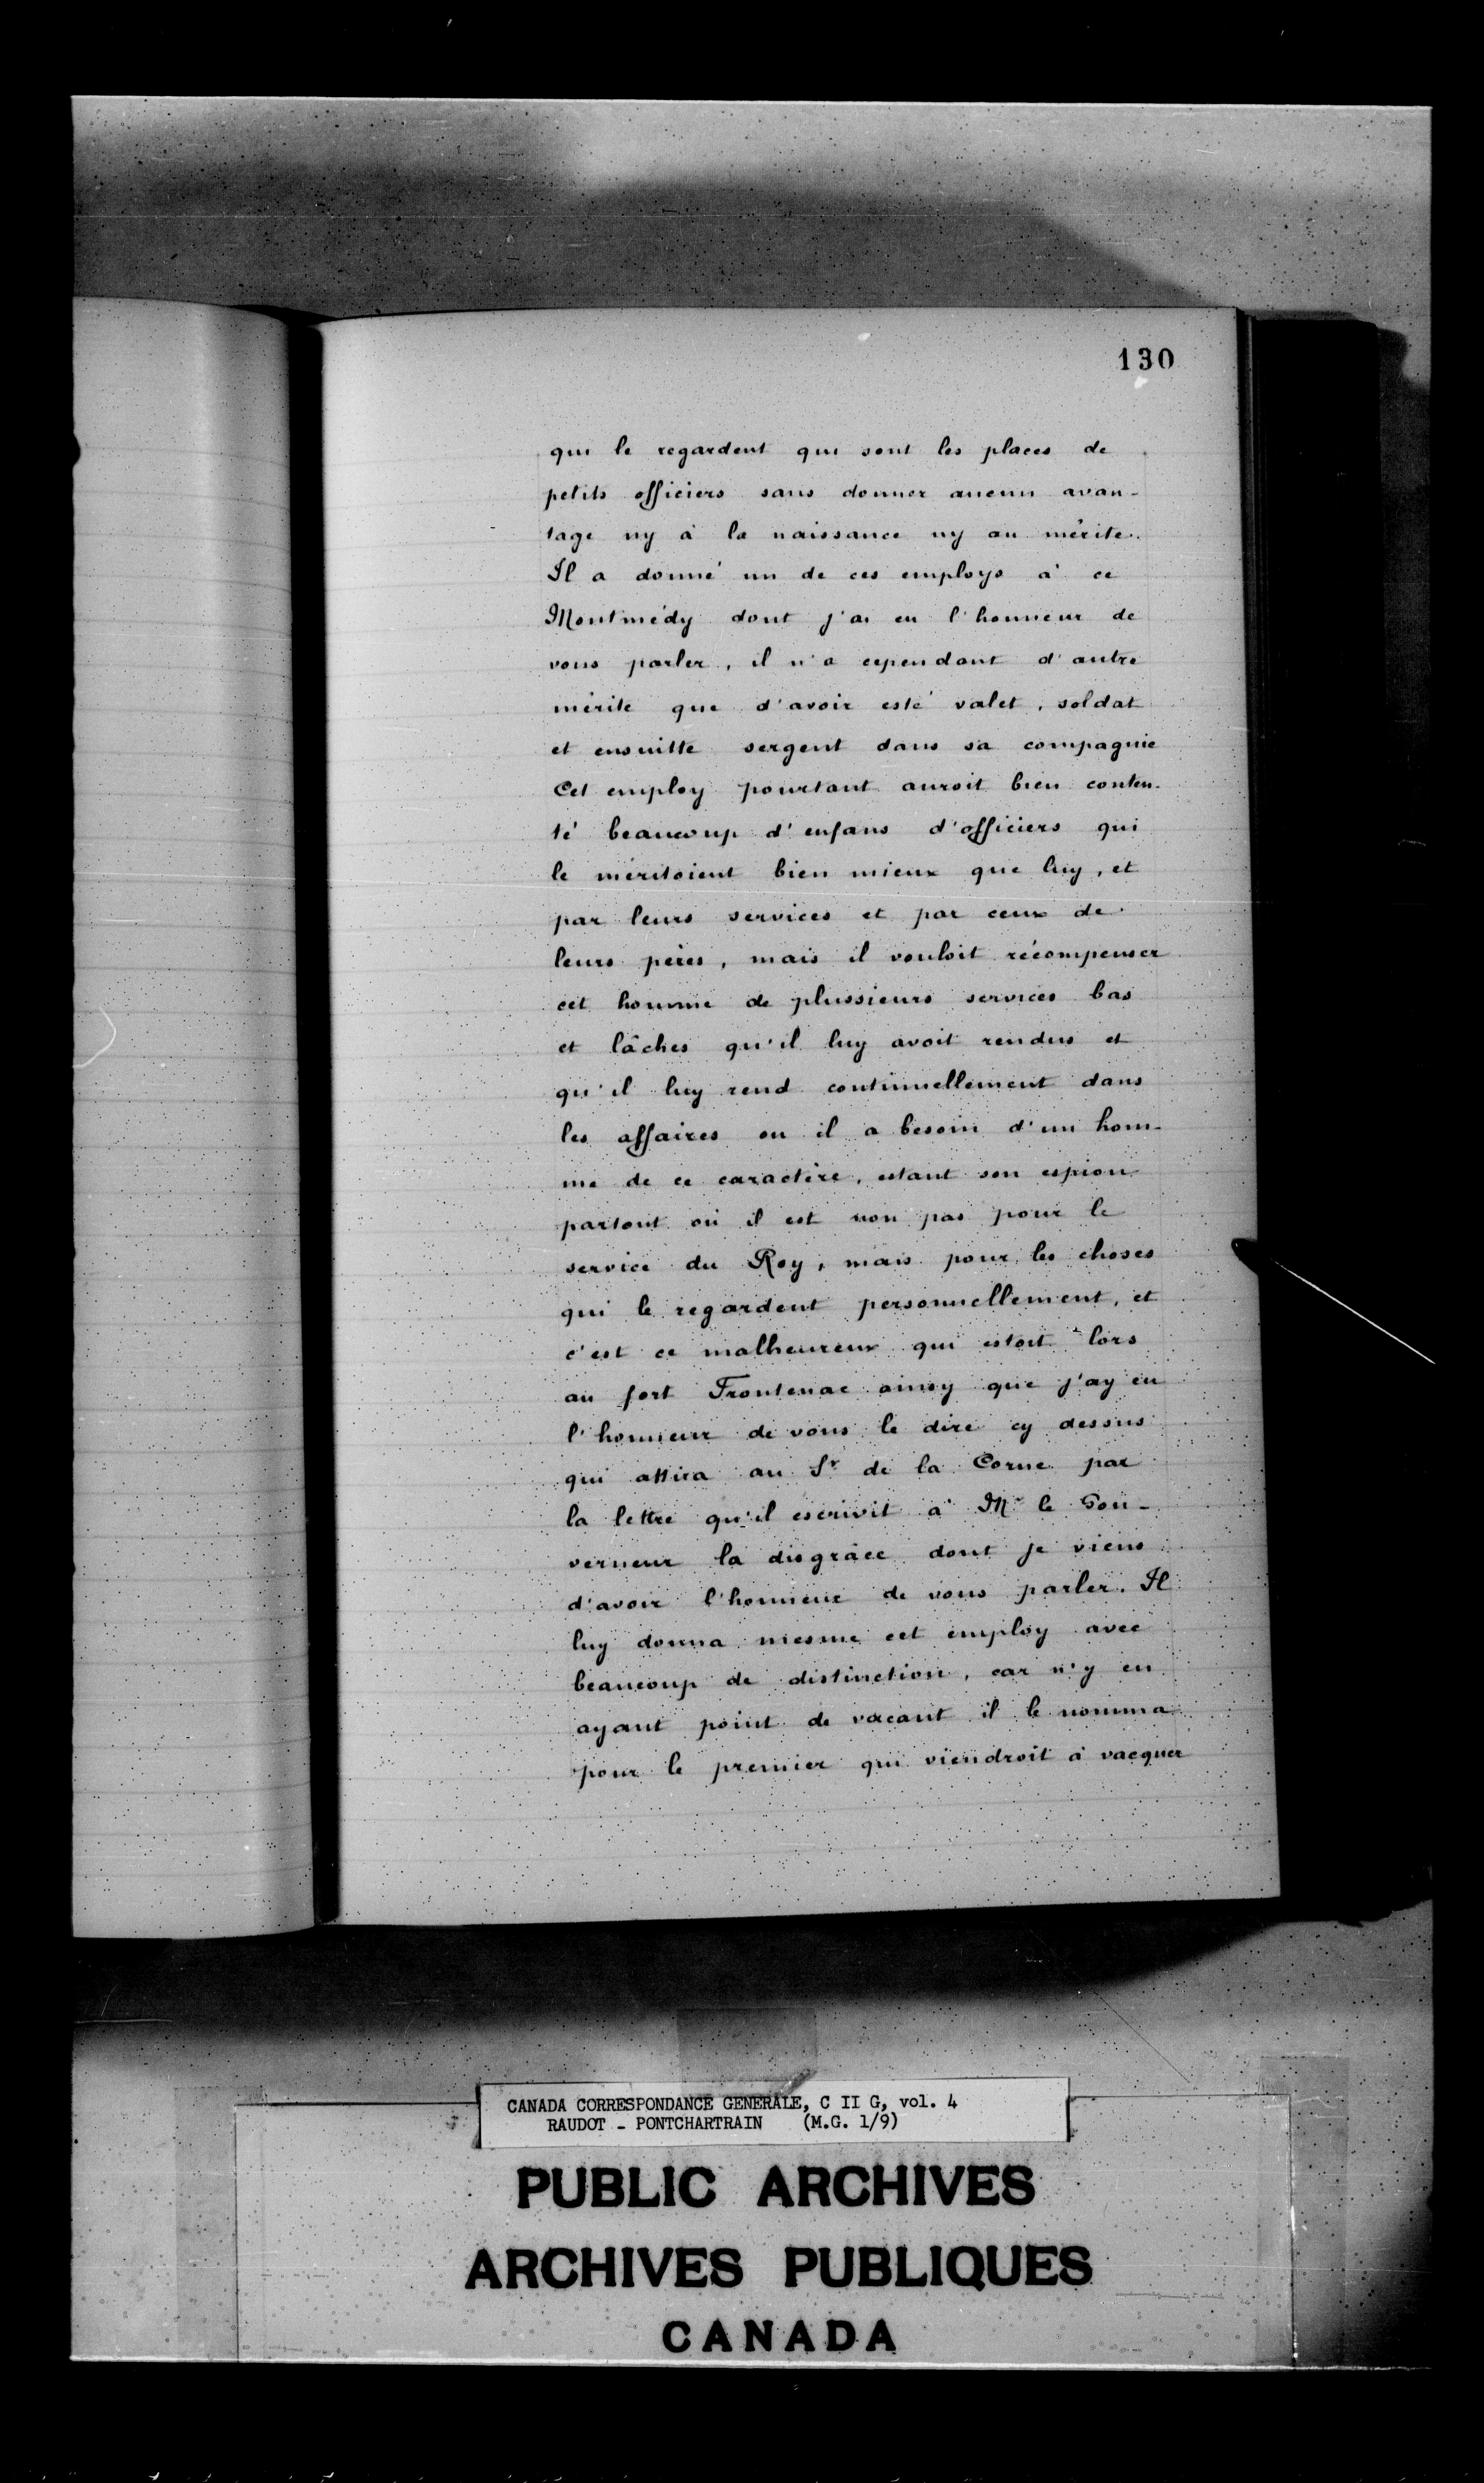 130
qui le regardent qui sont les places de
petits officiers sans donner aucun avan-
tage ny à la naissance ny au mérite.
Il a donné un de ces employs à ce
Montmédy dont j'ai eu l'honneur de
vous parler, il n'a cependant d'autre
mérite que d'avoir esté valet, soldat
et ensuitte sergent dans sa compagnie
Cet employ pourtant auroit bien conten-
té beaucoup d'enfans d'officiers qui
le méritoient bien mieux que luy, et
par leurs services et par ceux de
leurs pères, mais il vouloit récompenser
cet homme de plussieurs services bas
et lâches qu'il luy avoit rendus et
qu'il luy rend continuellement dans
les affaires ou il a besoin d'un hom-
me de ce caractère, estant son espion
partout où il est non pas pour le
service du Roy, mais pour les choses
qui le regardent personnellement, et
c'est ce malheureux qui estoit lors
au fort Frontenac ainsy que j'ay eu
l'honneur de vous le dire cy dessus
qui attira au Sr de la Corne par
la lettre qu'il escrivit à Mr le Gou-
verneur la disgrâce dont je viens
d'avoir l'honneur de vous parler. Il
luy donna mesme cet employ avec
beaucoup de distinction, car n'y en
ayant point de vacant il le nomma
pour le premier qui viendroit à vacquer
CANADA CORRESPONDANCE GENERALE, C II G, vol. 4
RAUDOT - PONTCHARTRAIN (M.G. 1/9)
PUBLIC ARCHIVES
ARCHIVES PUBLIQUES
CANADA